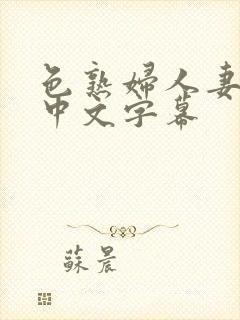 色熟婦人妻
中文字幕
蘇晨